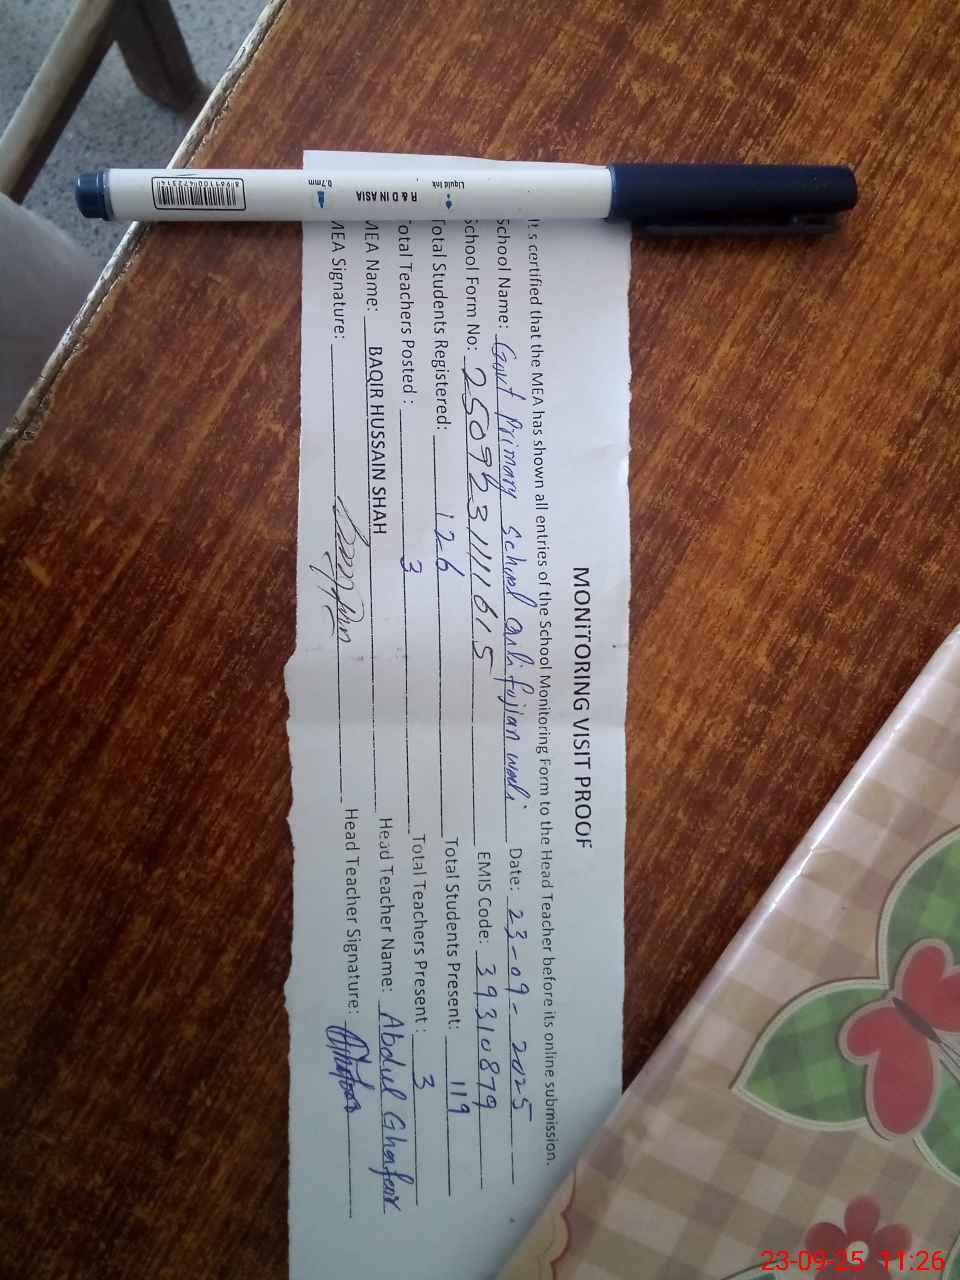 MONITORING VISIT PROOF
It s certified that the MEA has shown all entries of the School Monitoring Form to the Head Teacher before its online submission.
School Name: Govt Primary School fujian wali Date: 23-09-2025
School Form No: 25092311111615 EMIS Code: 39310879
Total Students Registered: 126 Total Students Present: 119
Total Teachers Posted : 3 Total Teachers Present : 3
MEA Name: BAQIR HUSSAIN SHAH Head Teacher Name: Abdul Ghafoor
MEA Signature: Head Teacher Signature:
Liquid Ink R & D IN ASIA 0.7mm
8 961100 472314
23-09-25 11:26